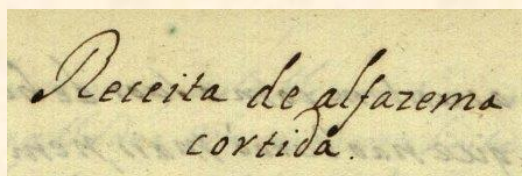 Receita de alfazema
cortida.